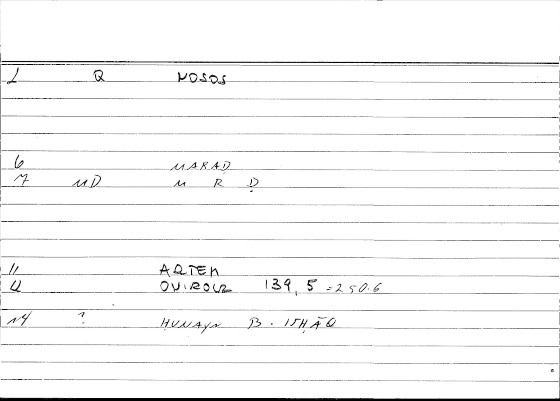 1 Q NOSOS
6 MARAD
7 MD M R Ḍ
11 ARTEM
139, 5 = 250.6
14 ? HUNAYN B. ISHĀQ